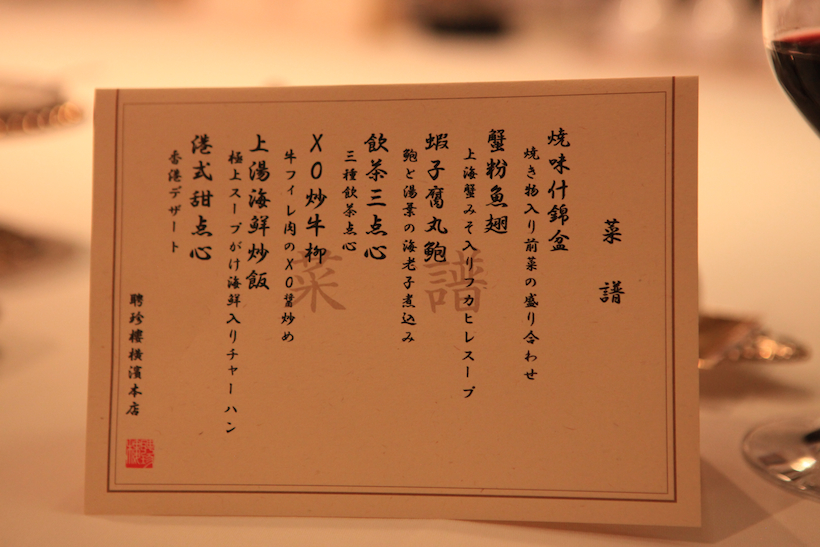 菜譜
焼味什錦盆
焼き物入り前菜の盛り合わせ
蟹粉魚翅
上海蟹みそ入りフカヒレスープ
蝦子腐丸鮑
鮑と湯葉の海老子煮込み
飲茶三点心
三種飲茶点心
XO炒牛柳
牛フィレ肉のXO醤炒め
上湯海鮮炒飯
極上スープがけ海鮮入りチャーハン
港式甜点心
香港デザート
聘珍樓横濱本店
菜譜